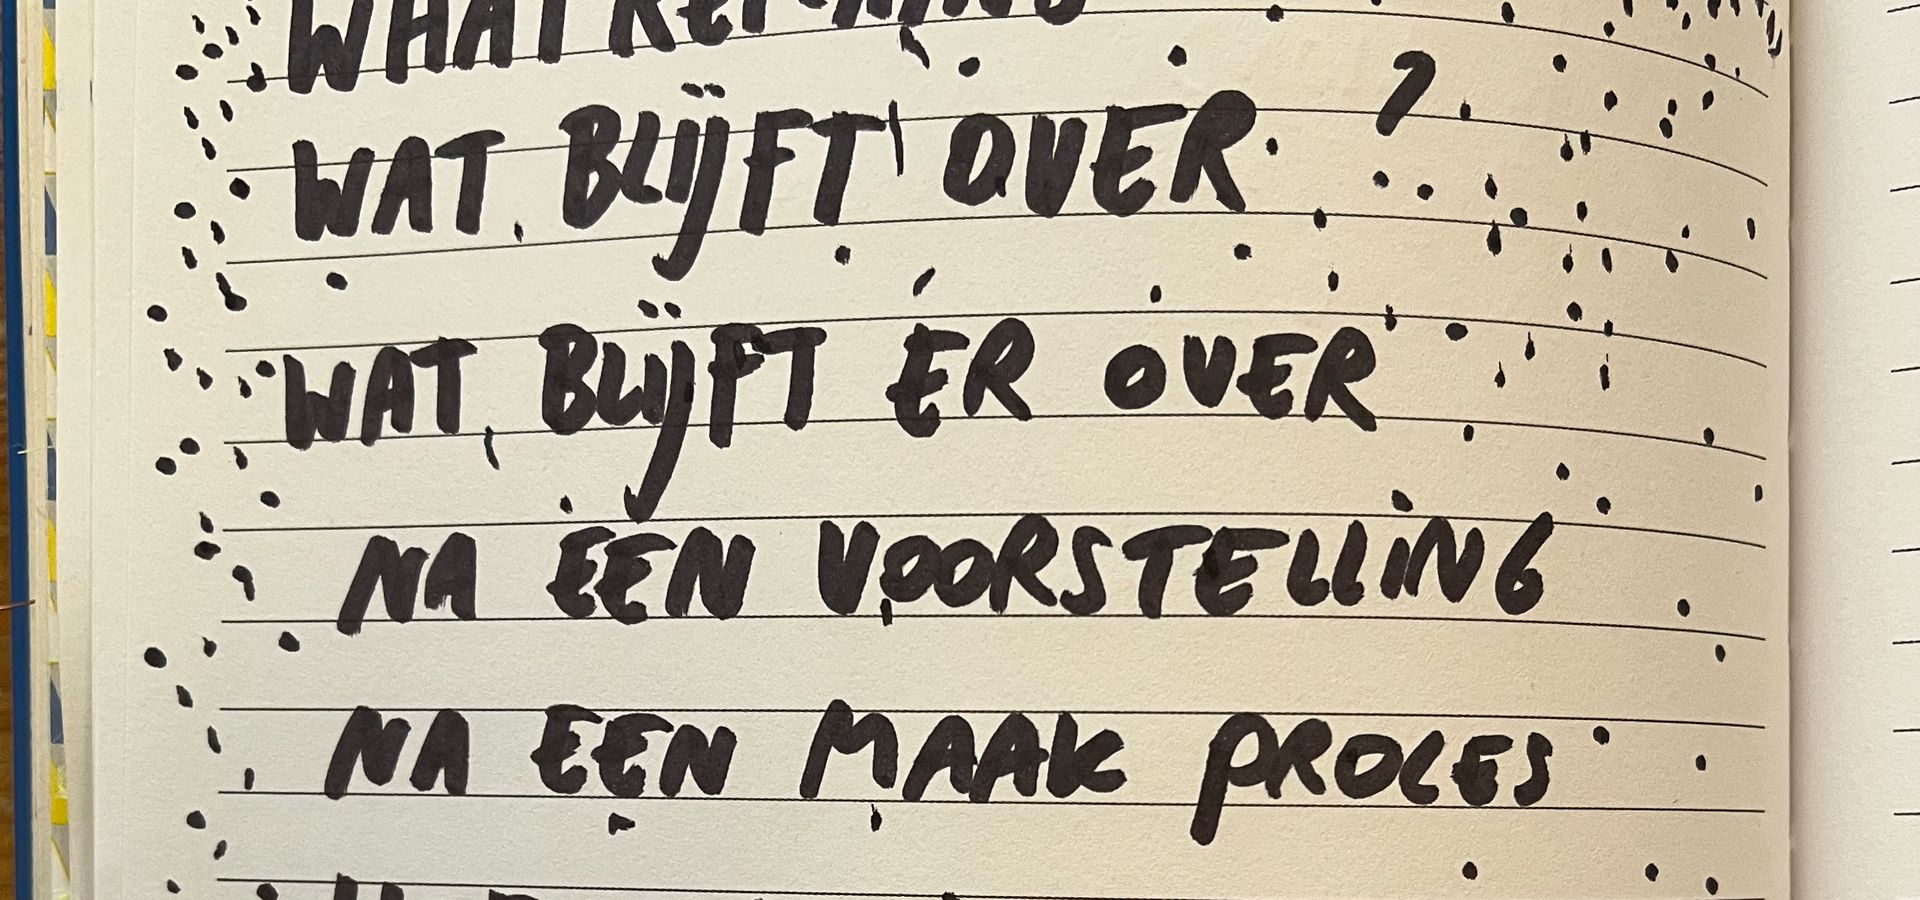 WHAT REMAINS
WAT BLIJFT OVER ?
WAT BLIJFT ER OVER
NA EEN VOORSTELLING
NA EEN MAAK PROCES